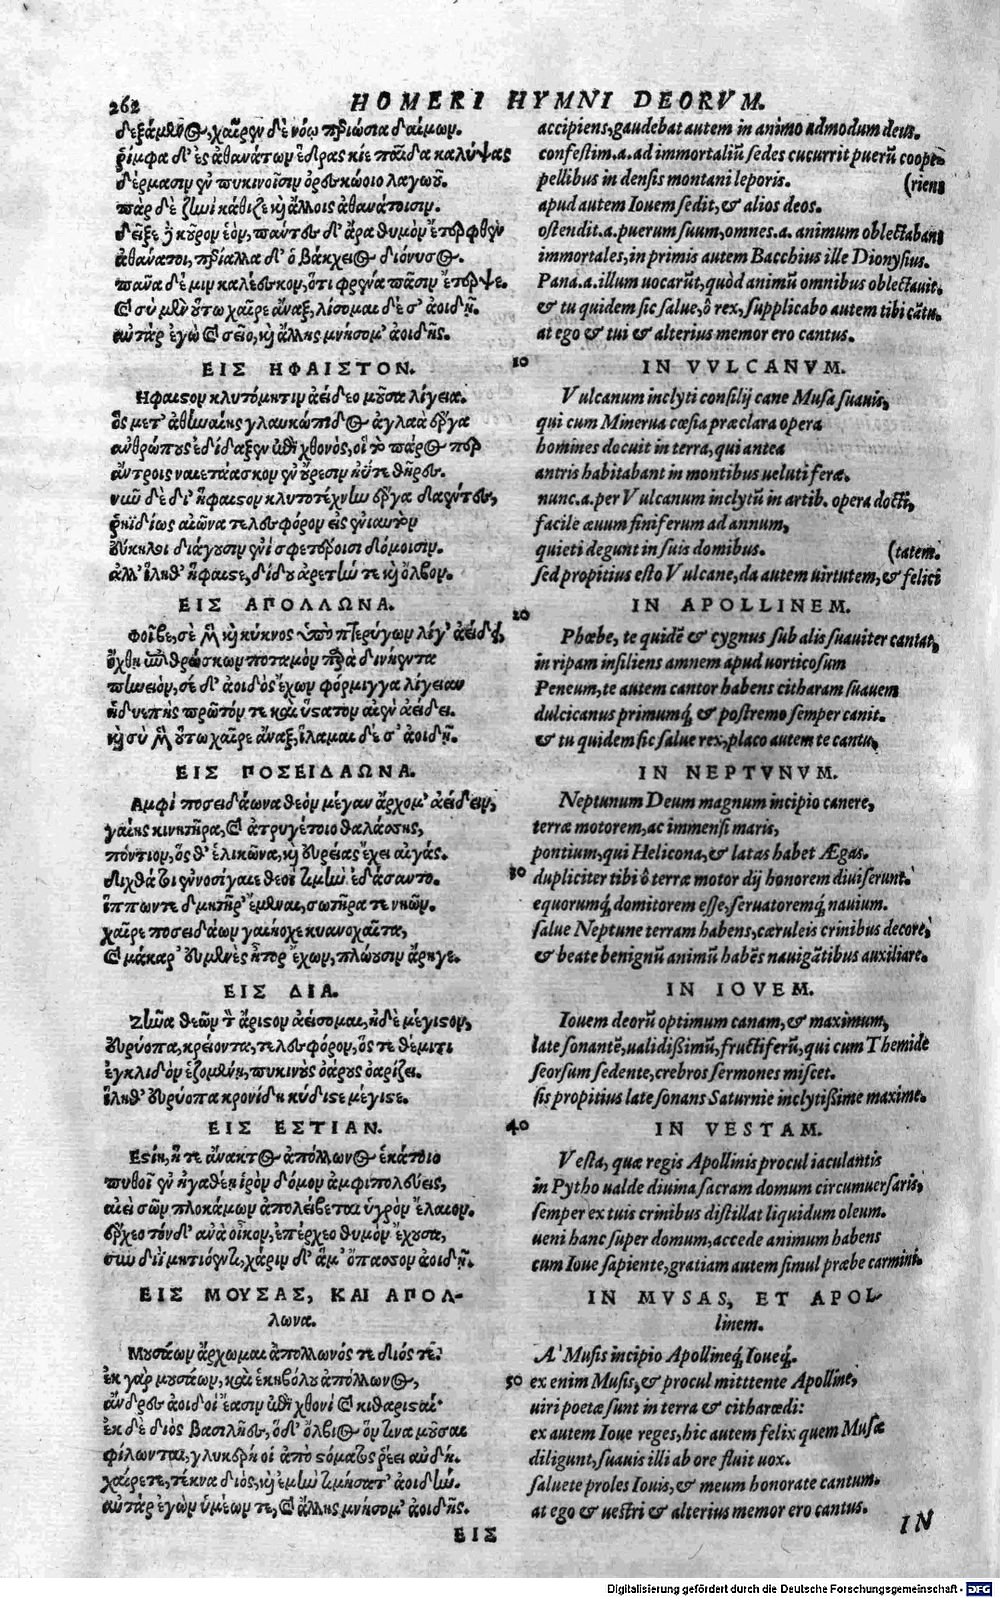 262
HOMERI HYMNI DEORVM.
δεξάμενος, χαῖρεν δὲ νόω περιώσια δαίμων.
ῥίμφα δ' ἐς ἀθανάτων ἕδρας κίε παῖδα καλύψας
δέρμασιν ἐν πυκινοῖσιν ὀρεσκώοιο λαγωοῦ.
πὰρ δὲ ζηνὶ κάθιζε κỳ ἄλλοις ἀθανάτοισιν.
δεῖξε ȷ̀ κοῦρον ἑὸν, πάντες δ' ἄρα θυμὸν ἔτερφθεν
ἀθάνατοι, περίαλλα δ' ὁ βάκχειος διόνυσος.
πᾶνα δέ μιν καλέεσκον, ὅτι φρένα πᾶσιν ἔτερψε.
καὶ σὺ μὲν οὕτω χαῖρε ἄναξ, λίσομαι δέ σ' ἀοιδῇ.
αὐτὰρ ἐγὼ καὶ σεῖο, κỳ ἄλλης μνήσομ' ἀοιδῆς.
ΕΙΣ ΗΦΑΙΣΤΟΝ.
Ηφαιστον κλυτόμητιν ἀείδεο μοῦσα λίγεια.
ὃς μετ' ἀθηναίης γλαυκώπιδος ἀγλαὰ ἔργα
ἀνθρώπους ἐδίδαξεν ἐπὶ χθονὸς, οἳ τὸ πάρος περ
ἄντροις ναιετάασκον ἐν οὔρεσιν ἠΰτε θῆρες.
νῦν δὲ δι' ἥφαιστον κλυτοτέχνην ἔργα δαέντες,
ῥηϊδίως αἰῶνα τελεσφόρον εἰς ἐνιαυτὸν
εὔκηλοι διάγουσιν ἐνὶ σφετέροισι δόμοισιν.
ἀλλ' ἵληθ' ἥφαιστε, δίδου ἀρετήν τε κỳ ὄλβον.
ΕΙΣ ΑΠΟΛΛΩΝΑ.
Φοῖβε, σὲ μὲν κỳ κύκνος ὑπὸ πτερύγων λίγ' ἀείδει,
ὄχθῃ ἐπιθρώσκων ποταμὸν παρὰ δινήεντα
πηνειὸν, σὲ δ' ἀοιδὸς ἔχων φόρμιγγα λίγειαν
ἡδυεπὴς πρῶτόν τε καὶ ὕστατον αἰὲν ἀείδει.
κỳ σὺ μὲν οὕτω χαῖρε ἄναξ, ἵλαμαι δέ σ' ἀοιδῇ.
ΕΙΣ ΠΟΣΕΙΔΑΩΝΑ.
Αμφὶ ποσειδάωνα θεὸν μέγαν ἄρχομ' ἀείδειν,
γαίης κινητῆρα, καὶ ἀτρυγέτοιο θαλάσσης,
πόντιον, ὅς θ' ἑλικῶνα, κỳ εὐρείας ἔχει αἰγάς.
διχθά τοι ἐννοσίγαιε θεοὶ τιμὴν ἐδάσαντο.
ἵππων τε δμητῆρ' ἔμεναι, σωτῆρά τε νηῶν.
χαῖρε ποσειδάων γαιήοχε κυανοχαῖτα,
καὶ μάκαρ' εὐμενὲς ἦτορ ἔχων, πλώουσιν ἄρηγε.
ΕΙΣ ΔΙΑ.
Ζῆνα θεῶν τὸν ἄριστον ἀείσομαι, ἠδὲ μέγιστον,
εὐρύοπα, κρείοντα, τελεσφόρον, ὅς τε θέμιτι
ἐγκλιδὸν ἑζομένῃ, πυκινοὺς ὀάρους ὀαρίζει.
ἵληθ' εὐρύοπα κρονίδη κύδιστε μέγιστε.
ΕΙΣ ΕΣΤΙΑΝ.
Εστίη, ἥ τε ἄνακτος ἀπόλλωνος ἑκάτοιο
πυθοῖ ἐν ἠγαθέῃ ἱερὸν δόμον ἀμφιπολεύεις,
αἰεὶ σῶν πλοκάμων ἀπολείβεται ὑγρὸν ἔλαιον.
ἔρχεο τόνδ' ἀνὰ οἶκον, ἐπέρχεο θυμὸν ἔχουσα,
σὺν διῒ μητιόεντι, χάριν δ' ἅμ' ὄπασσον ἀοιδῇ.
ΕΙΣ ΜΟΥΣΑΣ, ΚΑΙ ΑΠΟΛ-
λωνα.
Μουσάων ἄρχωμαι ἀπόλλωνός τε διός τε.
ἐκ γὰρ μουσάων, καὶ ἑκηβόλου ἀπόλλωνος,
ἄνδρες ἀοιδοὶ ἔασιν ἐπὶ χθονὶ καὶ κιθαρισταί·
ἐκ δὲ διὸς βασιλῆες, ὁ δ' ὄλβιος ὅν τινα μοῦσαι
φίλωνται, γλυκερή οἱ ἀπὸ στόματος ῥέει αὐδή.
χαίρετε, τέκνα διὸς, κỳ ἐμὴν τιμήσατ' ἀοιδήν.
αὐτὰρ ἐγὼν ὑμέων τε, καὶ ἄλλης μνήσομ' ἀοιδῆς.
ΕΙΣ
accipiens, gaudebat autem in animo admodum deus.
confestim.a. ad immortaliũ sedes cucurrit puerũ coope-
pellibus in densis montani leporis. (riens
apud autem Iouem sedit, & alios deos.
ostendit.a. puerum suum, omnes.a. animum oblectabant
immortales, in primis autem Bacchius ille Dionysius.
Pana.a. illum uocarũt, quòd animũ omnibus oblectauit.
& tu quidem sic salue, ô rex, supplicabo autem tibi cãtu.
at ego & tui & alterius memor ero cantus.
10 IN VVLCANVM.
Vulcanum inclyti consilij cane Musa suauis,
qui cum Minerua cæsia præclara opera
homines docuit in terra, qui antea
antris habitabant in montibus ueluti feræ.
nunc.a. per Vulcanum inclytũ in artib. opera docti,
facile æuum finiferum ad annum,
quieti degunt in suis domibus. (tatem.
sed propitius esto Vulcane, da autem uirtutem, & felici
20 IN APOLLINEM.
Phœbe, te quidẽ & cygnus sub alis suauiter cantat,
in ripam insiliens amnem apud uorticosum
Peneum, te autem cantor habens citharam suauem
dulcicanus primumq́; & postremo semper canit.
& tu quidem sic salue rex, placo autem te cantu,
IN NEPTVNVM.
Neptunum Deum magnum incipio canere,
terræ motorem, ac immensi maris,
pontium, qui Helicona, & latas habet Ægas.
30 dupliciter tibi ô terræ motor dij honorem diuiserunt.
equorumq́; domitorem esse, seruatoremq́; nauium.
salue Neptune terram habens, cæruleis crinibus decore,
& beate benignũ animũ habẽs nauigãtibus auxiliare.
IN IOVEM.
Iouem deorũ optimum canam, & maximum,
late sonantẽ, ualidißimũ, fructiferũ, qui cum Themide
seorsum sedente, crebros sermones miscet.
sis propitius late sonans Saturnie inclytißime maxime.
40 IN VESTAM.
Vesta, quæ regis Apollinis procul iaculantis
in Pytho ualde diuina sacram domum circumuersaris,
semper ex tuis crinibus distillat liquidum oleum.
ueni hanc super domum, accede animum habens
cum Ioue sapiente, gratiam autem simul præbe carmini.
IN MVSAS, ET APOL-
linem.
A' Musis incipio Apollineq́; Ioueq́;.
50 ex enim Musis, & procul mitttente Apolline,
uiri poetæ sunt in terra & citharœdi:
ex autem Ioue reges, hic autem felix quem Musæ
diligunt, suauis illi ab ore fluit uox.
saluete proles Iouis, & meum honorate cantum.
at ego & uestri & alterius memor ero cantus.
IN
Digitalisierung gefördert durch die Deutsche Forschungsgemeinschaft - DFG